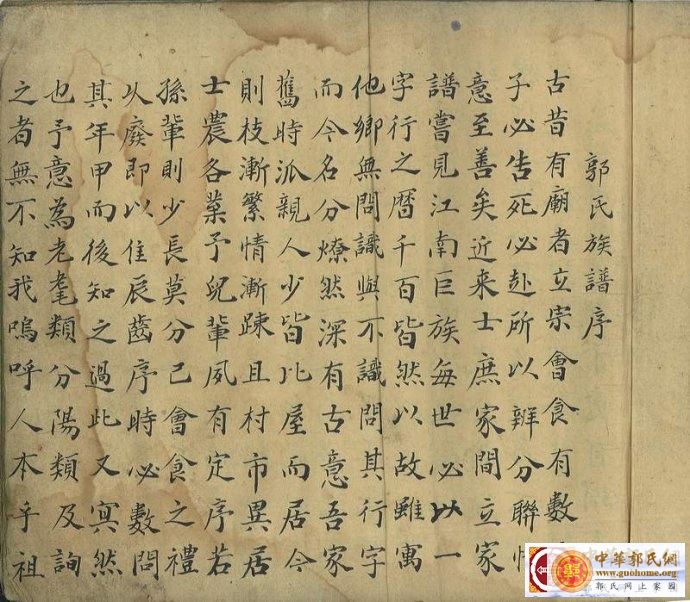 郭氏族譜序
古昔有廟者立宗會食有數
子必告死必赴所以辨分聯情
意至善矣近来士庶家間立家
譜嘗見江南巨族每世必以一
字行之曆千百皆然以故雖寓
他鄉無問識與不識問其行字
而令名分燎然深有古意吾家
舊時派親人少皆比屋而居今
則枝漸繁情漸踈且村市異居
士農各業予兒輩夙有定序若
孫輩則少長莫分已會食之禮
久廢即以住辰齒序時必數問
其年甲而後知之過此又冥然
也予意為老耄類分陽類及詢
之者無不知我嗚呼人本乎祖
中華郭氏網
www.guohome.org
郭氏網上家園